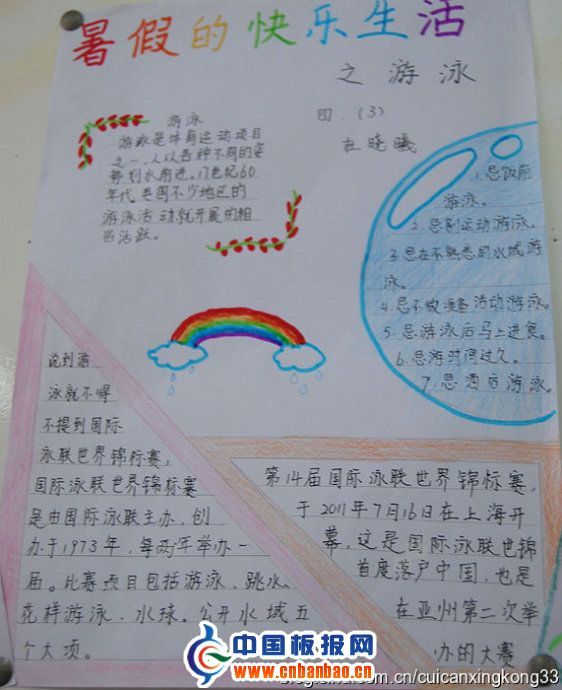 暑假的快乐生活
之游泳
四.(3)
杜晓曦
游泳
游泳是体育运动项目
之一,人以各种不同的姿
势划水前进。17世纪60
年代英国不少地区的
游泳活动就开展的相
当活跃。
1.忌饭前
游泳。
2.忌剧运动游泳。
3.忌在不熟悉的水域游
泳。
4.忌不做准备活动游泳。
5.忌游泳后马上进食。
6.忌游时间过久。
7.忌酒后游泳。
说到游
泳就不得
不提到国际
泳联世界锦标赛,
国际泳联世界锦标赛
是由国际泳联主办,创
办于1973年,每两年举办一
届。比赛项目包括游泳、跳水、
花样游泳、水球。公开水域五
个大项。
第14届国际泳联世界锦标赛,
于2011年7月16日在上海开
幕,这是国际泳联世锦
首度落户中国,也是
在亚州第二次举
办的大赛
中国板报网
www.cnbanbao.cn
blog.sina.com.cn/cuicanxingkong33